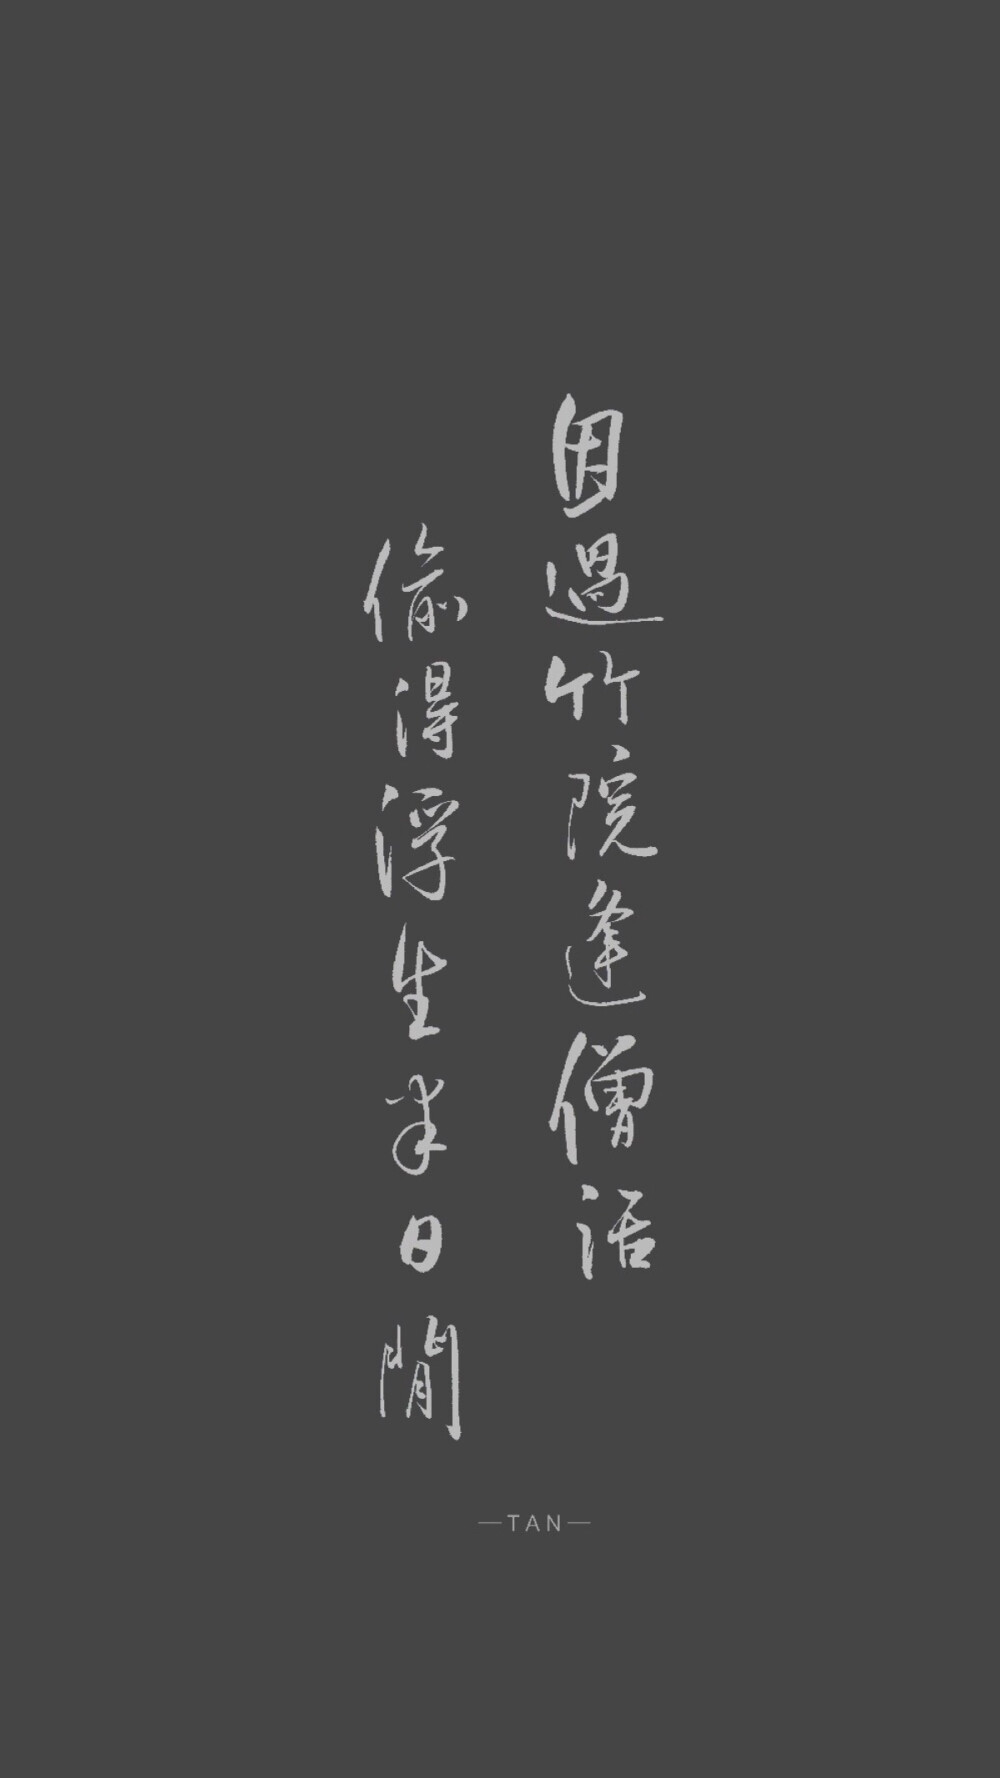 因過竹院逢僧話
偷得浮生半日閒
—TAN—